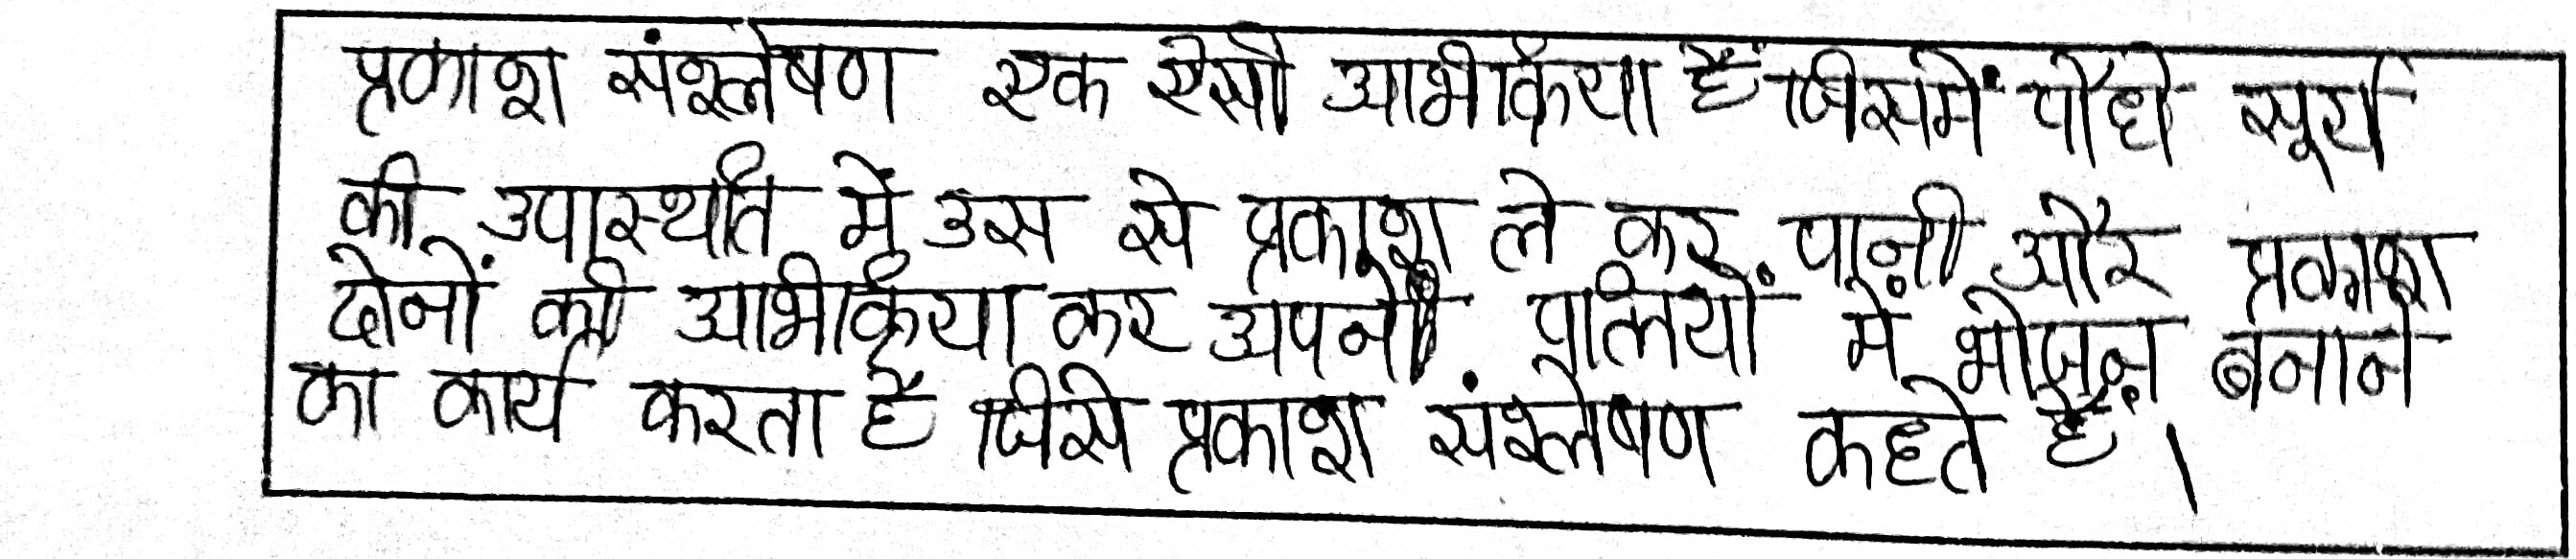 प्रकाश संश्लेषण एक ऐसी अभिक्रिया हैं जिसमें पौधे सूर्य
की उपस्थिति में उस से प्रकाश ले कर पानी और प्रकाश
दोनों की अभिक्रिया कर अपनी पत्तियों में भोजन बनाने
का कार्य करता है जिसे प्रकाश संश्लेषण कहते है।